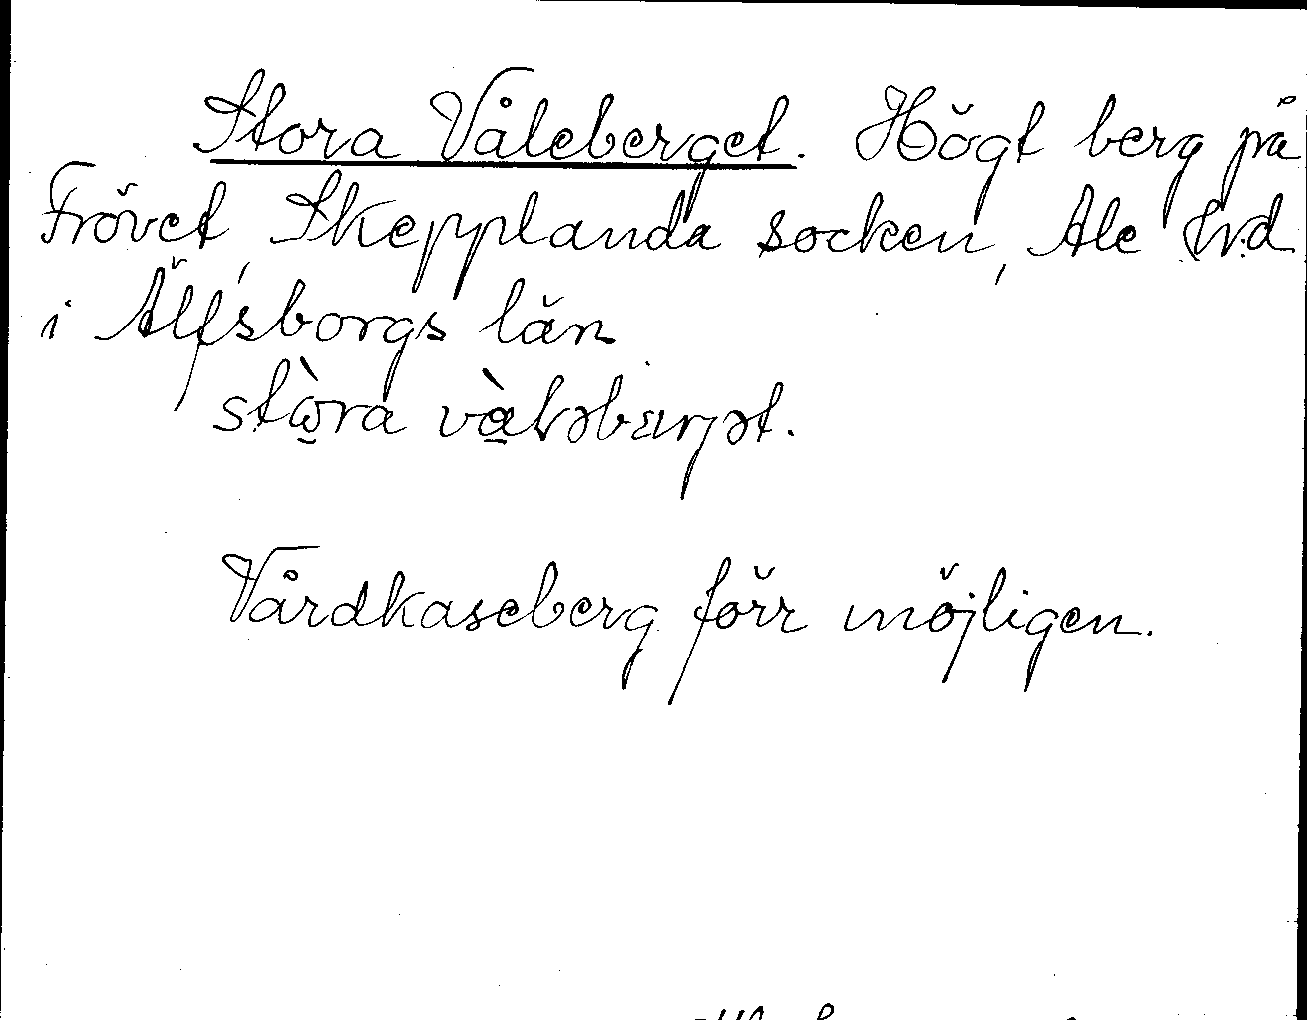 Stora Våleberget. Högt berg på
Frövet, Skepplanda socken, Ale hrd
i Älfsborgs län
stò̱ra và̱ləbærjət.
Vårdkaseberg förr möjligen.